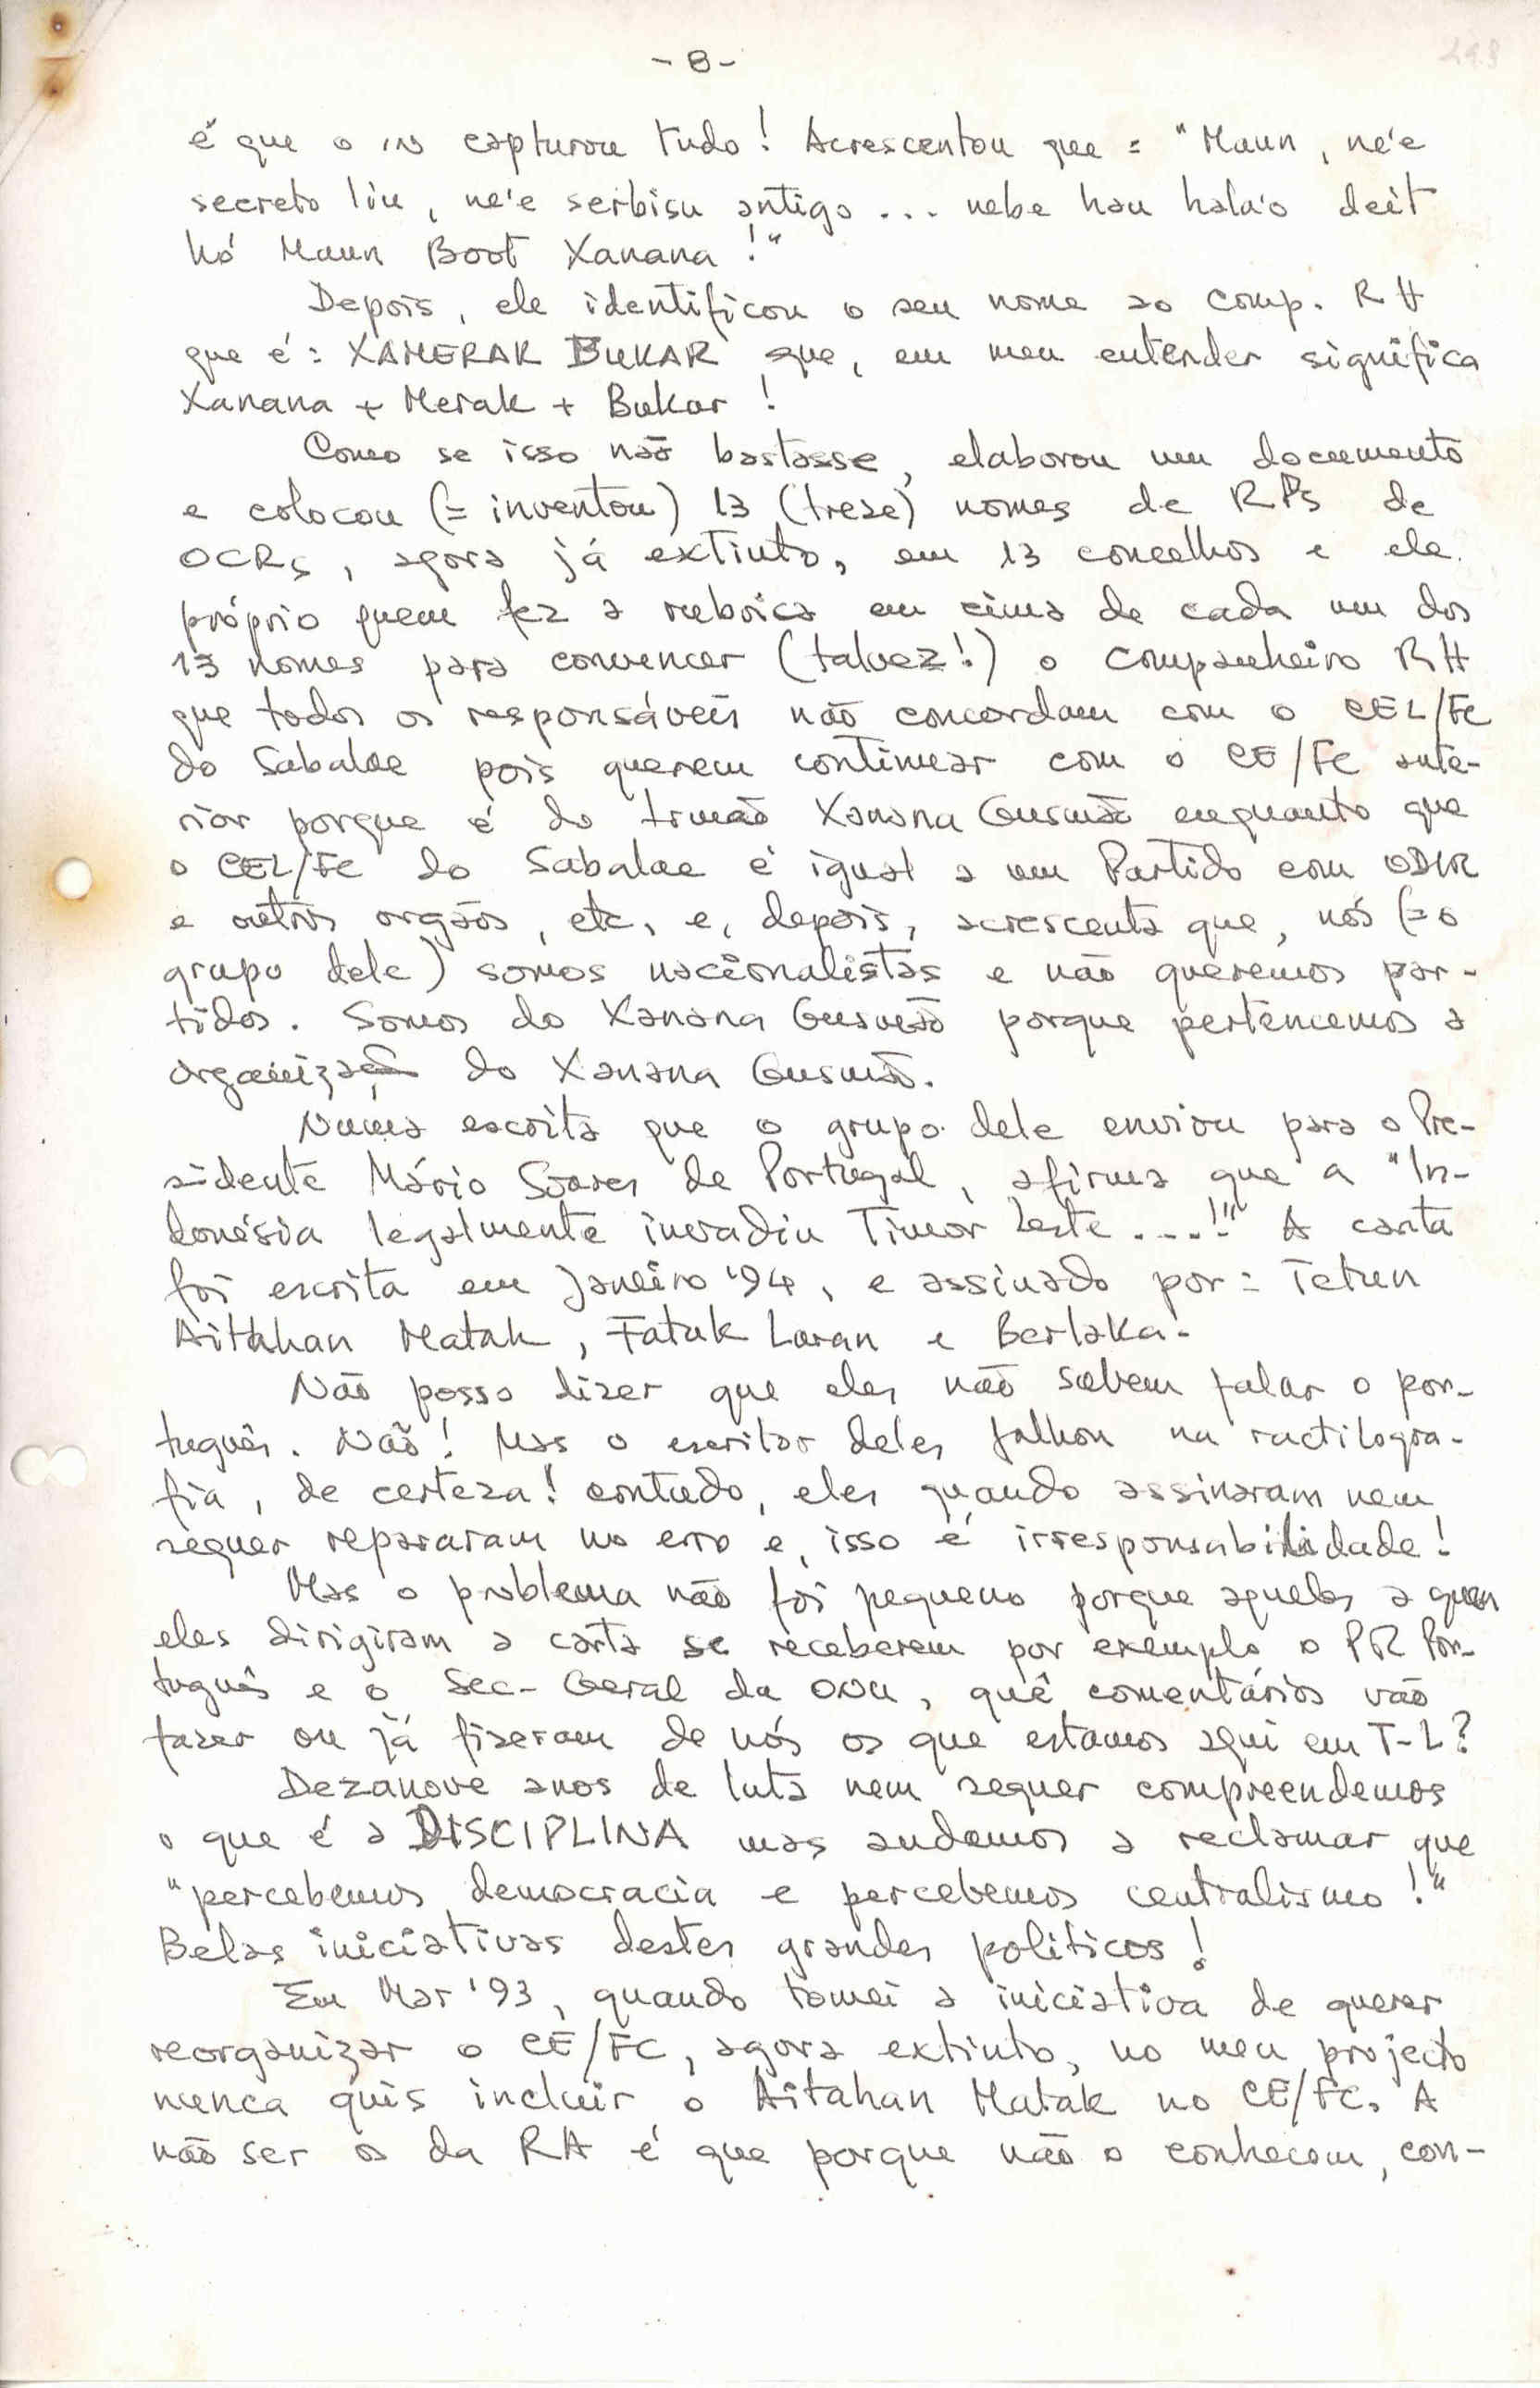 - 8 -
é que o in capturou tudo! Acrescentou que = "Maun, né'e
secreto liu, ne'e serbisu antigo ... nebe hau hala'o deit
hó Maun Boot Xanana!"
Depois, ele identificou o seu nome ao comp. RH
que é: XAMERAK BUKAR que, em meu entender significa
Xanana + Merak + Bukar!
Como se isso não bastasse, elaborou um documento
e colocou (= inventou) 13 (treze) nomes de RPs de
OCRs, agora já extinto, em 13 concelhos e ele
próprio quem fez a rubrica em cima de cada um dos
13 nomes para convencer (talvez!) o Companheiro RH
que todos os responsáveis não concordam com o CEL/FC
do Sabalae pois querem continuar com o CE/FC ante-
rior porque é do Irmão Xanana Gusmão enquanto que
o CEL/FC do Sabalae é igual a um Partido com ODIR
e outros orgãos, etc, e, depois, acrescenta que, nós (= o
grupo dele) somos nacionalistas e não queremos par-
tidos. Somos do Xanana Gusmão porque pertencemos a
organização do Xanana Gusmão.
Numa escrita que o grupo dele enviou para o Pre-
sidente Mário Soares de Portugal, afirma que a "In-
donésia legalmente invadiu Timor Leste ...!" A carta
foi escrita em Janeiro '94, e assinado por = Tetun
Aitahan Matak, Fatuk Laran e Berlaka.
Não posso dizer que eles não sabem falar o por-
tuguês. Não! Mas o escritor deles falhou na ractilogra-
fia, de certeza! contudo, eles quando assinaram nem
sequer repararam no erro e, isso é irresponsabilidade!
Mas o problema não foi pequeno porque aqueles a quem
eles dirigiram a carta se receberem por exemplo o PR Por-
tuguês e o Sec-Geral da ONU, quê comentários vão
fazer ou já fizeram de nós os que estamos aqui em T-L?
Dezanove anos de luta nem sequer compreendemos
o que é a DISCIPLINA mas andamos a reclamar que
"percebemos democracia e percebemos centralismo!"
Belas iniciativas destes grandes politicos!
Em Mar '93, quando tomei a iniciativa de querer
reorganizar o CE/FC, agora extinto, no meu projecto
nunca quis incluir o Aitahan Matak no CE/FC. A
não ser os da RA é que porque não o conhecem, con-